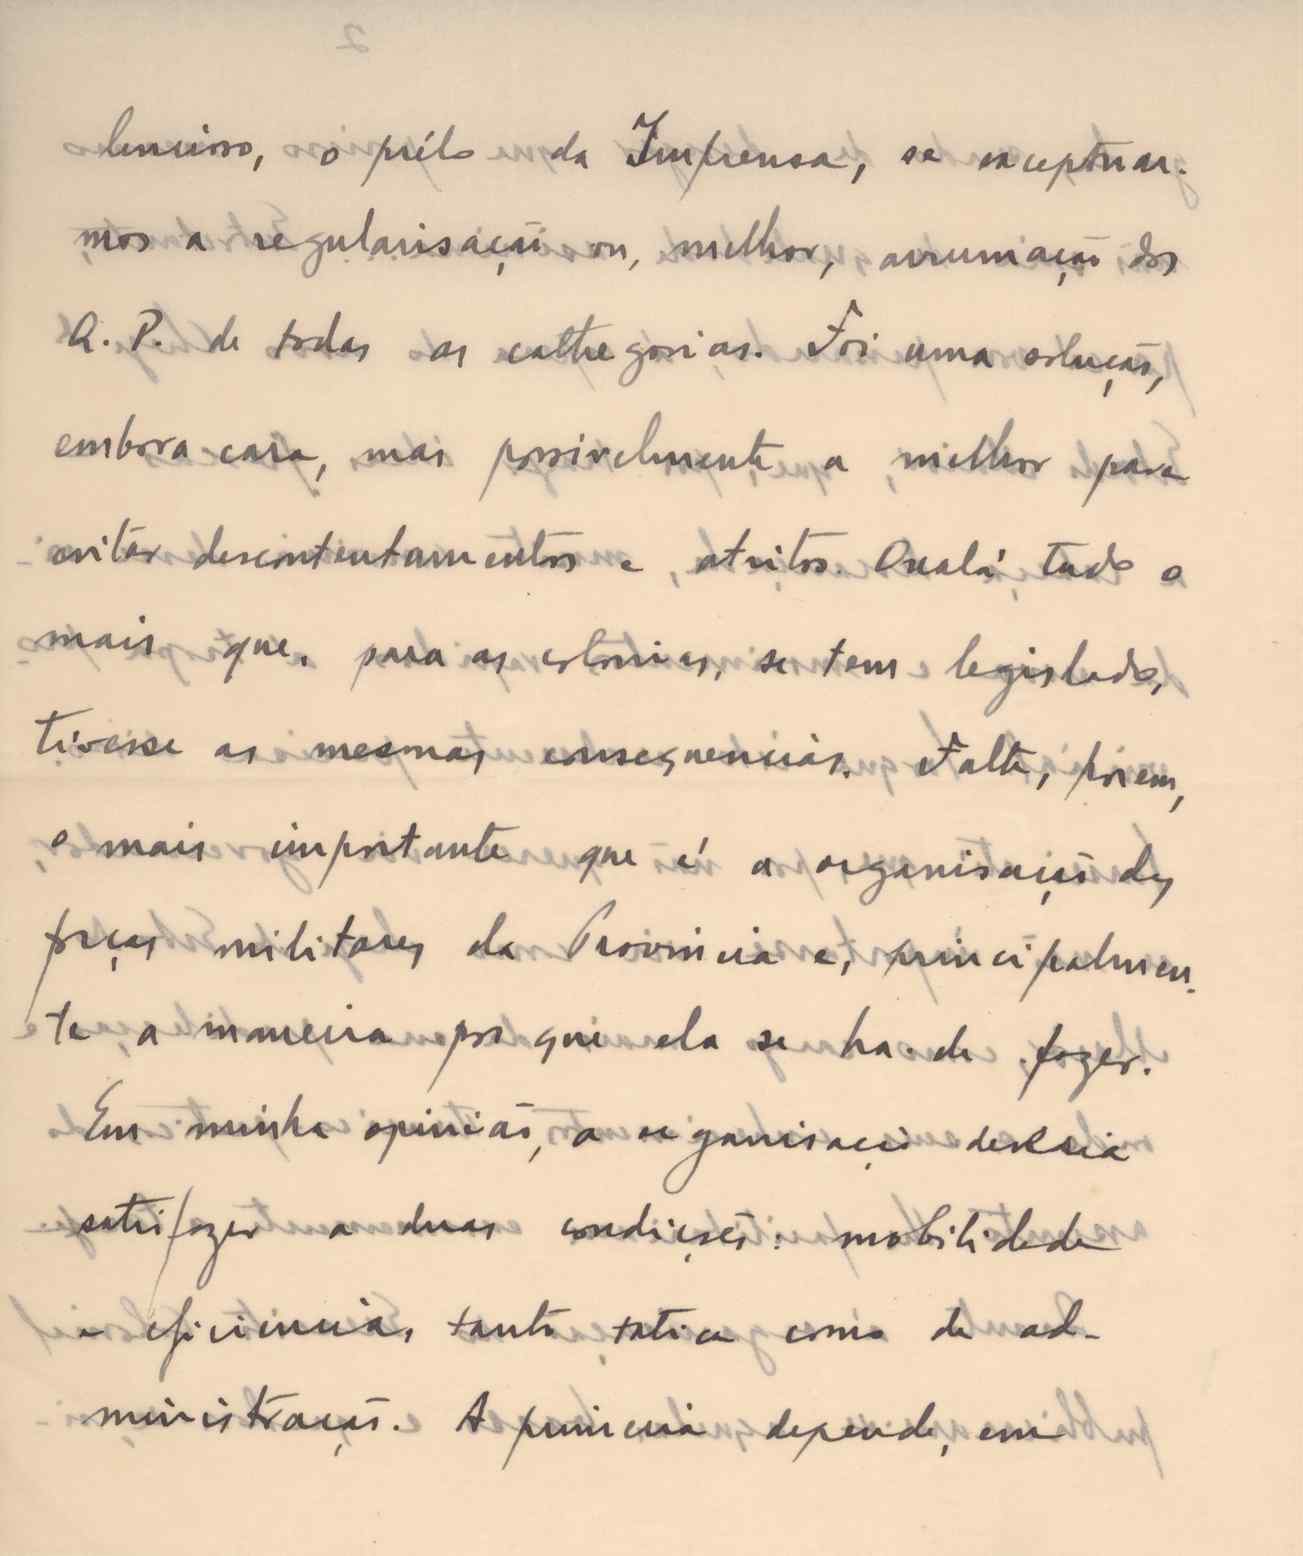 lencioso, o prélo da Imprensa, se exceptuar-
mos a regularisação ou, melhor, arrumação dos
Q. P. de todas as cathegorias. Foi uma solução,
embora cara, mas possivelmente a melhor para
evitar descontentamentos e atritos. Oxalá tudo o
mais que, para as colonias, se tem legislado,
tivesse as mesmas consequencias. Falta, porem,
o mais importante que é a organisação das
forças militares da Provincia e, principalmen-
te a maneira por que ela se ha-de fazer.
Em minha opinião, a organisação deveria
satisfazer a duas condições: mobilidade
e eficiencia, tanto tatica como de ad-
ministração. A primeira depende, em